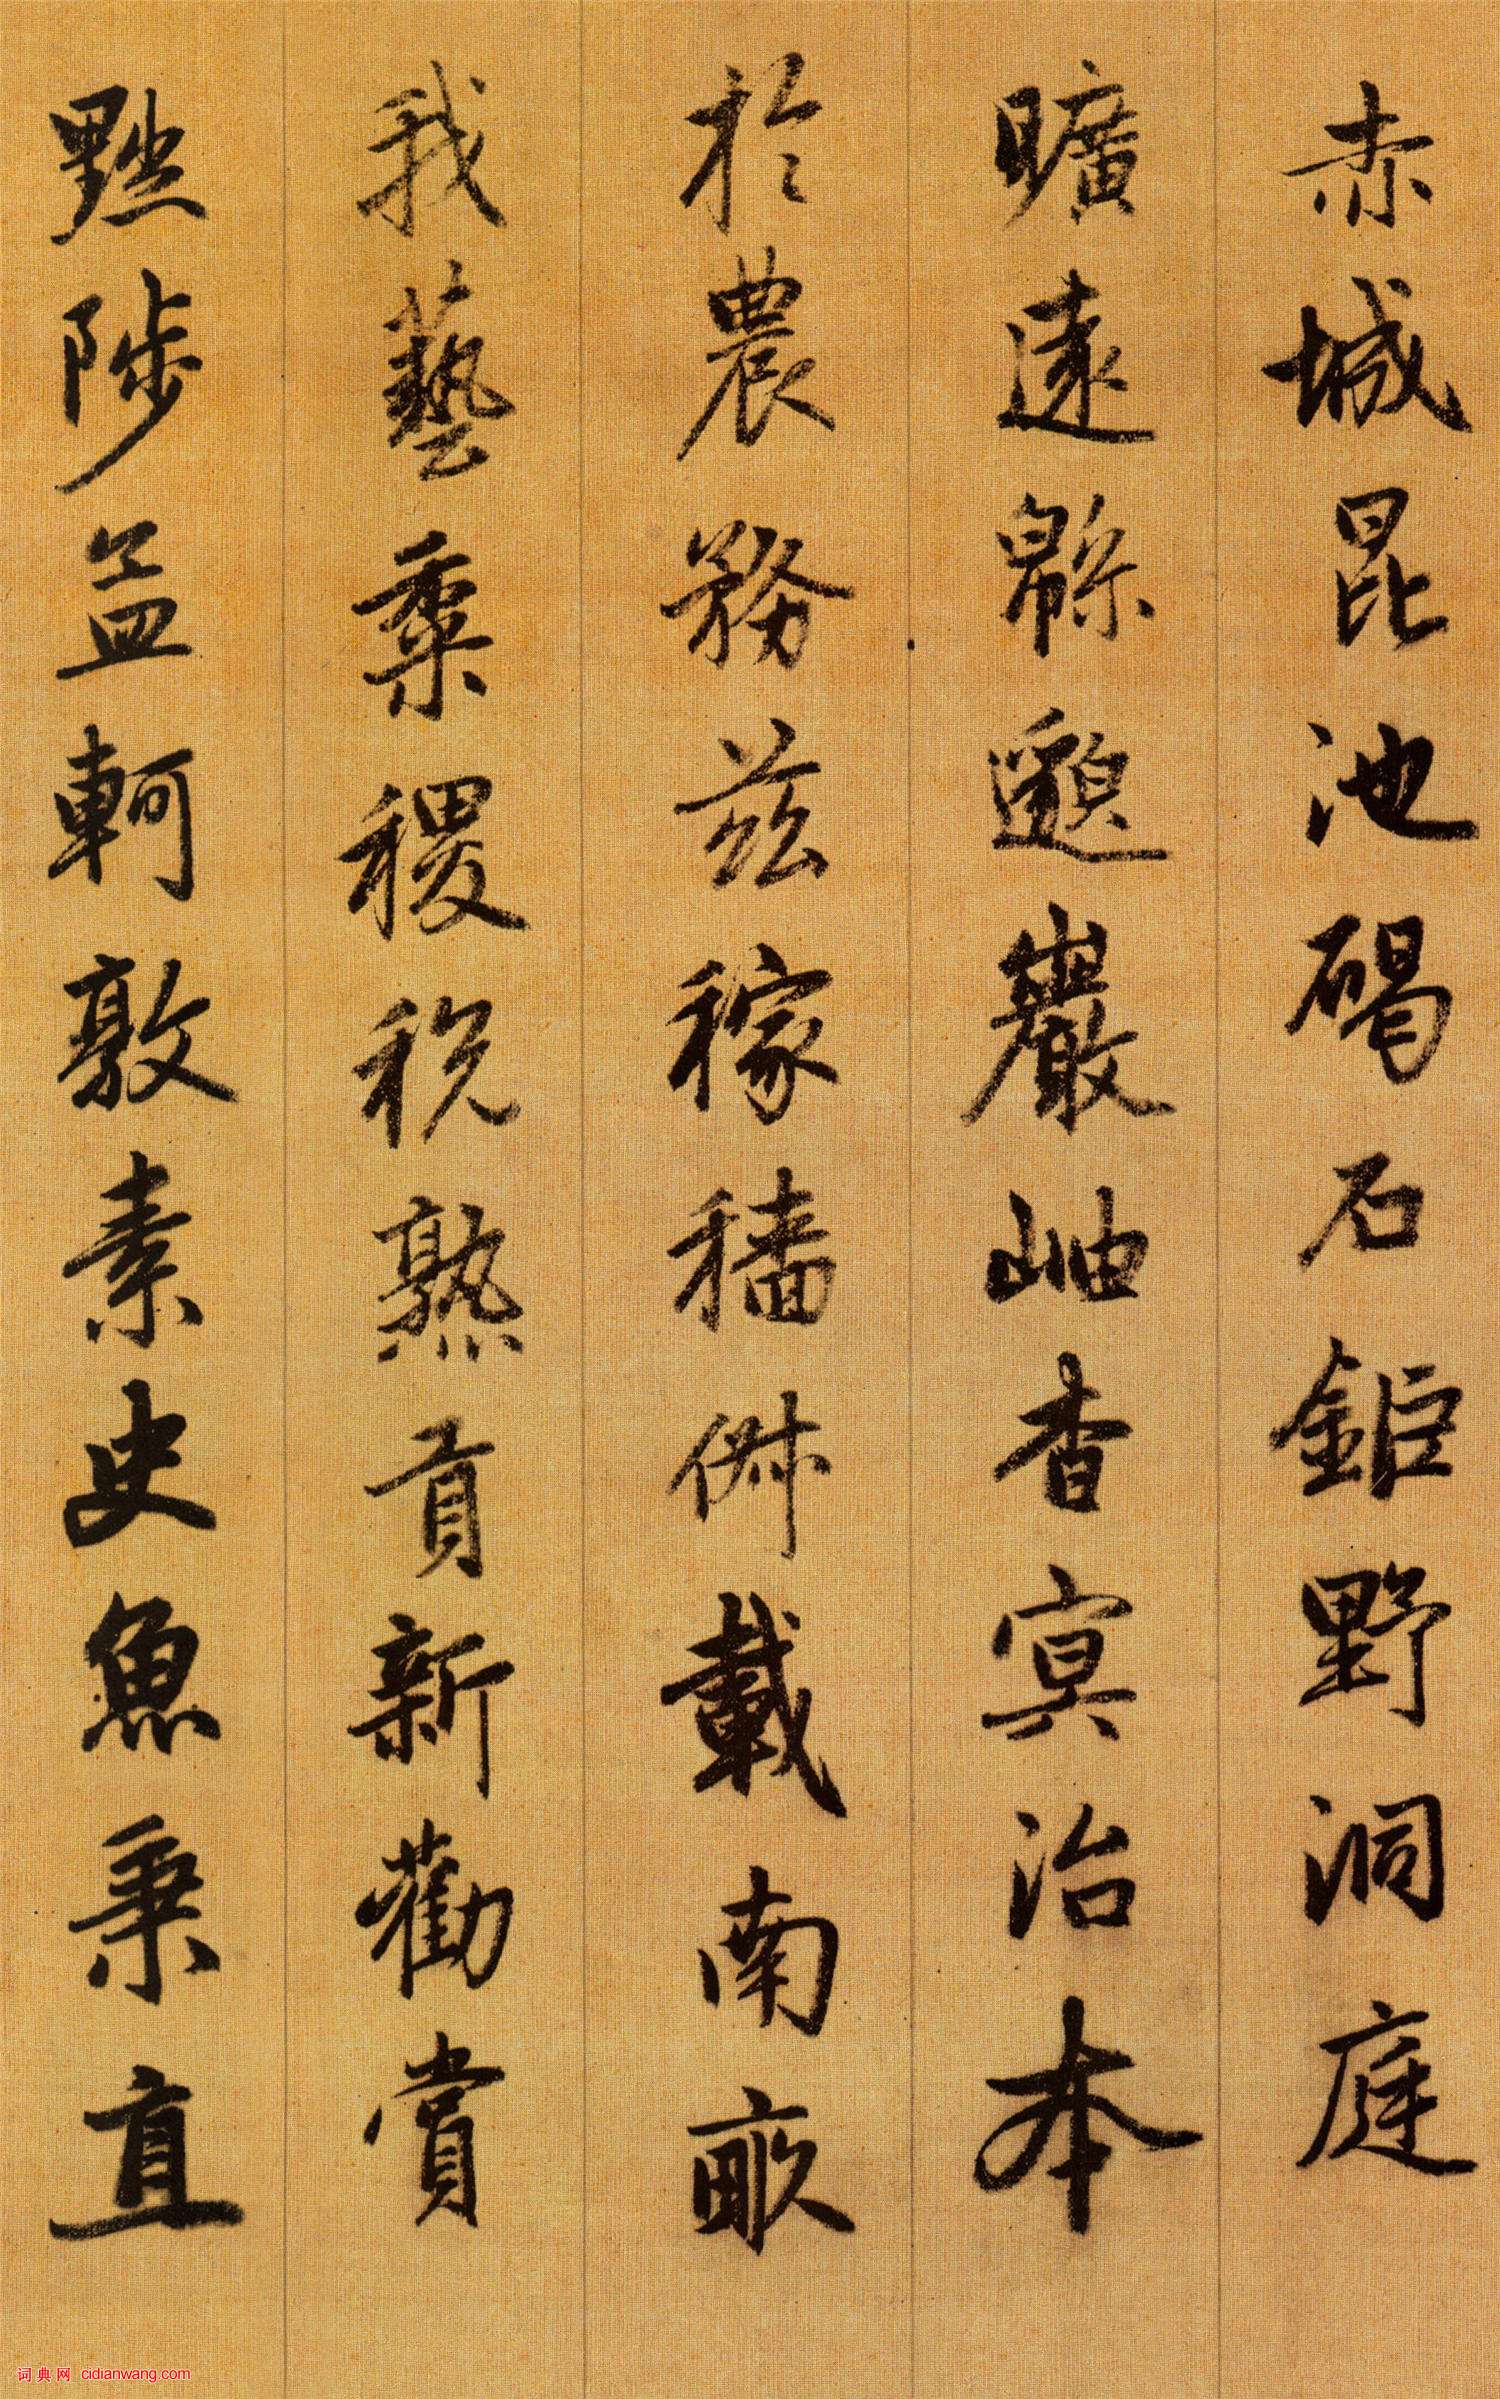 赤城昆池碣石鉅野洞庭
曠遠緜邈巖岫杳冥治本
於農務茲稼穡俶載南畝
我藝黍稷稅熟貢新勸賞
黜陟孟軻敦素史魚秉直
词典网 cidianwang.com